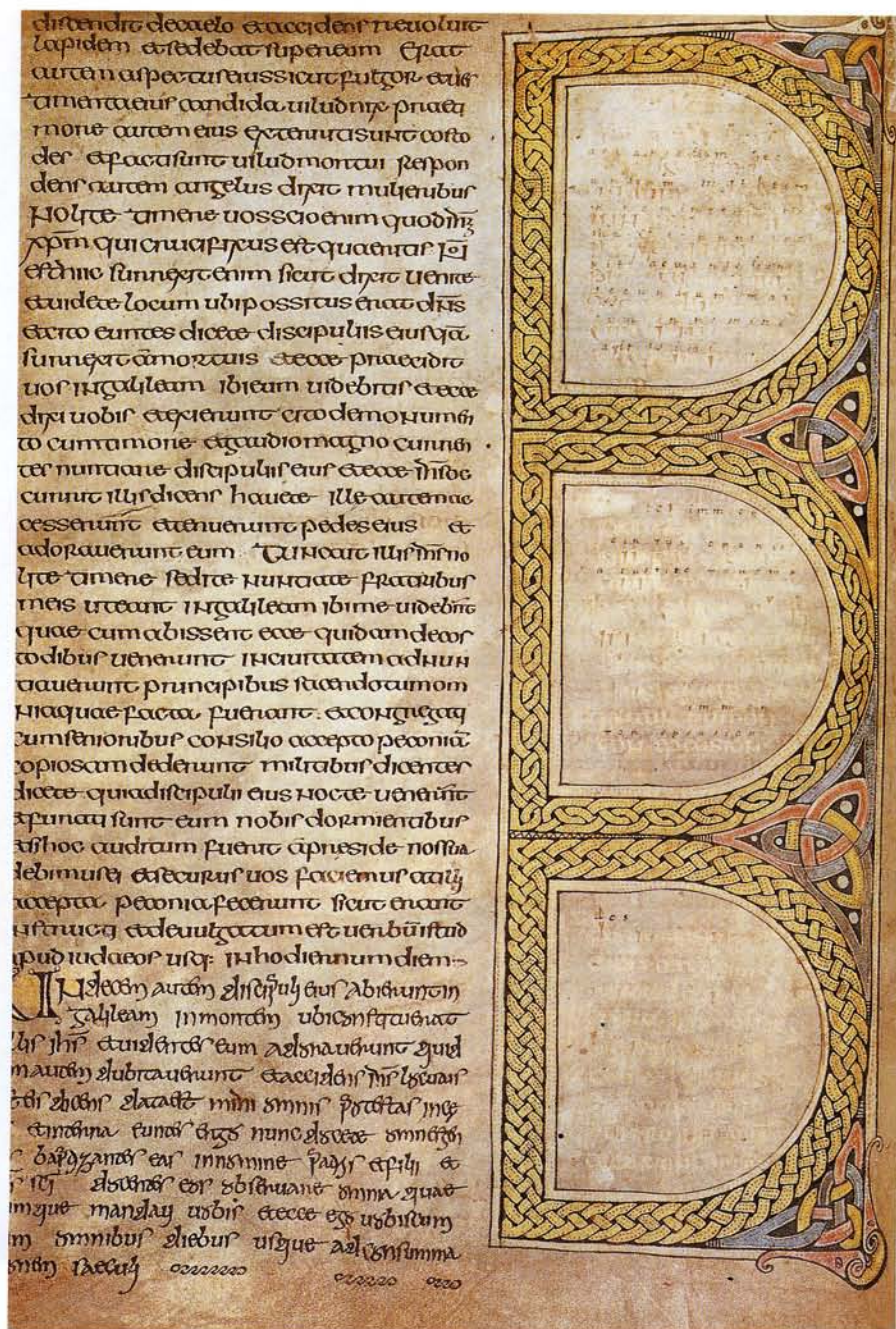 discendit de caelo et accidens revoluit
lapidem et sedebat super eum Erat
autem aspectus eius sicut fulgor et ues
timenta eius candida uilud nix prae ti
more autem eius exterriti sunt costo
des et facti sunt uilud mortui Respon
dens autem angelus dixit mulieribus
Nolite timere uos scio enim quod ihm
xpm qui crucifixus est quaeritis non
est hic surrexit enim sicut dixit uenite
et uidete locum ubi possitus erat dns
et cito euntes dicete discipulis eius quia
surrexit a mortuis et ecce praecidit
uos in galileam ibi eum uidebitis et ecce
dixi uobis et exierunt cito de monumen
to cum timore et gaudio magno curren
tes nuntiare discipulis eius et ecce ihs oc
currit illis dicens hauete ille autem ac
cesserunt et tenuerunt pedes eius et
adorauerunt eum Tunc ait illis ihs no
lite timere sed ite nunciate fratribus
meis ut eant in galileam ibi me uidebunt
quae cum abissent ecce quidam de cos
todibus uenerunt in ciuitatem adnun
tiauerunt principibus sacerdotum om
nia quae facta fuerant et congregati
cum senioribus consilio accepto peconiam
copiosam dederunt militibus dicentes
dicete quia discipuli eius nocte uenerunt
et furati sunt eum nobis dormientibus
et si hoc auditum fuerit a preside nos sua
debimus ei et securus uos faciemus at illi
accepta peconia fecerunt sicut erant
instructi et deuulgatum est uerbum istud
apud iudaeos usq: in hodiernum diem
Undecem autem discipuli eius abierunt in
galileam in montem ubi constituerat
illis ihs et uidentes eum adorauerunt quid
am autem dubitauerunt et accidens ihs locutus
est eis dicens data est mihi omnis potestas in ce
et in terra euntes ergo nunc docete omnes gen
baptizantes eas in nomine patris et filii et
sps sci docentes eos obseruare omnia quae
umque mandaui uobis et ecce ego uobiscum
sum omnibus diebus usque ad consumma
onem saeculi